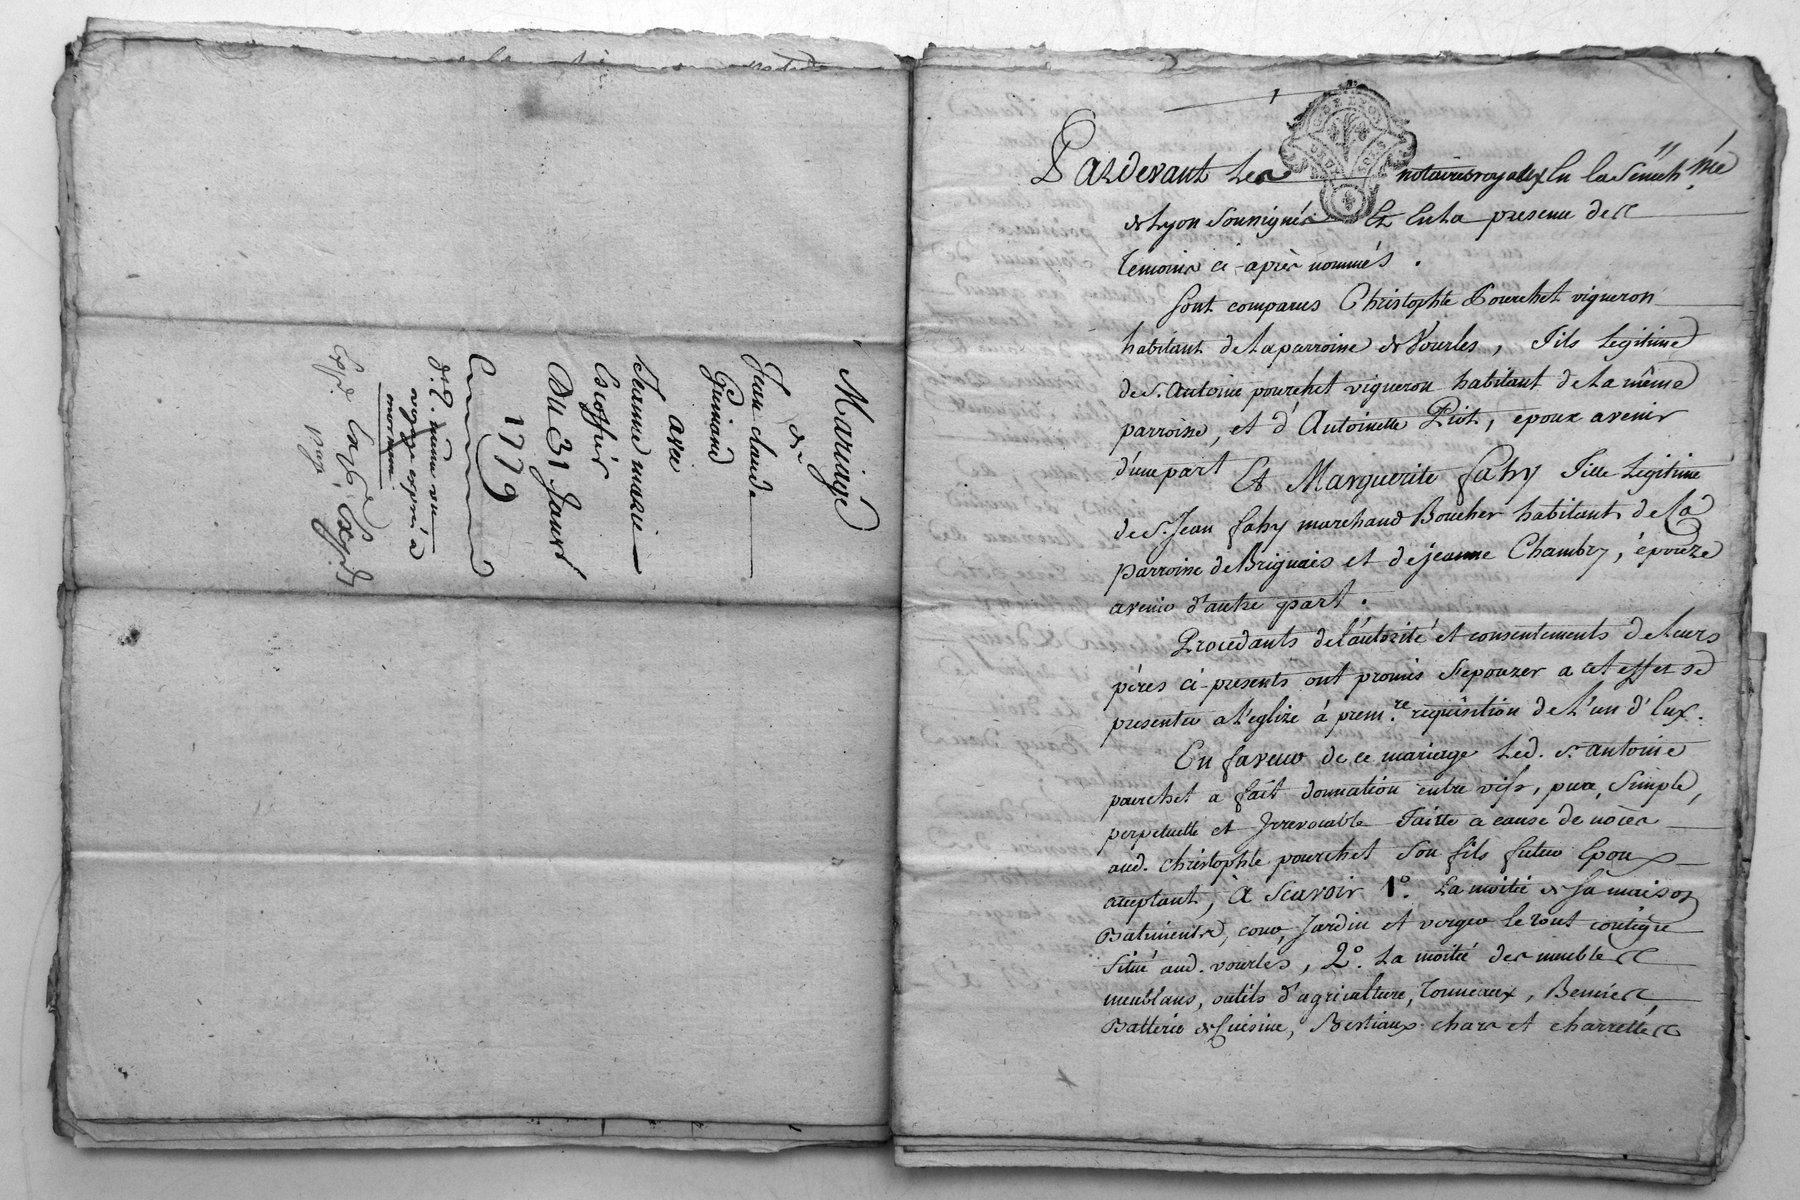 Mariage
de
Jean claude
Guinand
avec
Jeanne marie
Du 31 Janvr
1779
1
Pardevant Les notaires royaux En la Sénéch.née
de Lyon Soussignés Et En la presence des
temoins ci-après nommés.
Sont comparus Christophle Pourchet vigneron
habitant de La parroisse de Vourles, Fils Legitime
de s. Antoine pourchet vigneron habitant de La même
parroisse, et d'Antoinette Piot, epoux avenir
d'une part Et Marguerite fahy Fille Legitime
de s. Jean fahy marchand Boucher habitant de La
parroisse de Brignais et de jeanne Chambry, épouze
avenir d'autre part.
Procedants de l'autorité et consentements de Leurs
péres ci-presents ont promis S'epouzer a cet effet se
presenter a L'eglize à prem.re requisition de L'un d'Eux.
En faveur de ce mariage Led. s. antoine
pourchet a fait donnation entre vifs, pure, Simple,
perpetuelle et Jrrevocable Faitte a cause de nôces
aud. christophle pourchet Son fils futur Epoux
acceptant, à Scavoir 1°. La moitié de Sa maison
Batiments, cour, Jardin et verger le tout contigu
Situé aud. vourles, 2°. La moitié des meubles
meublans, outils d'agriculture, Tonneaux, Bennes
Batterie de Cuisine, Bestiaux chars et charrettes